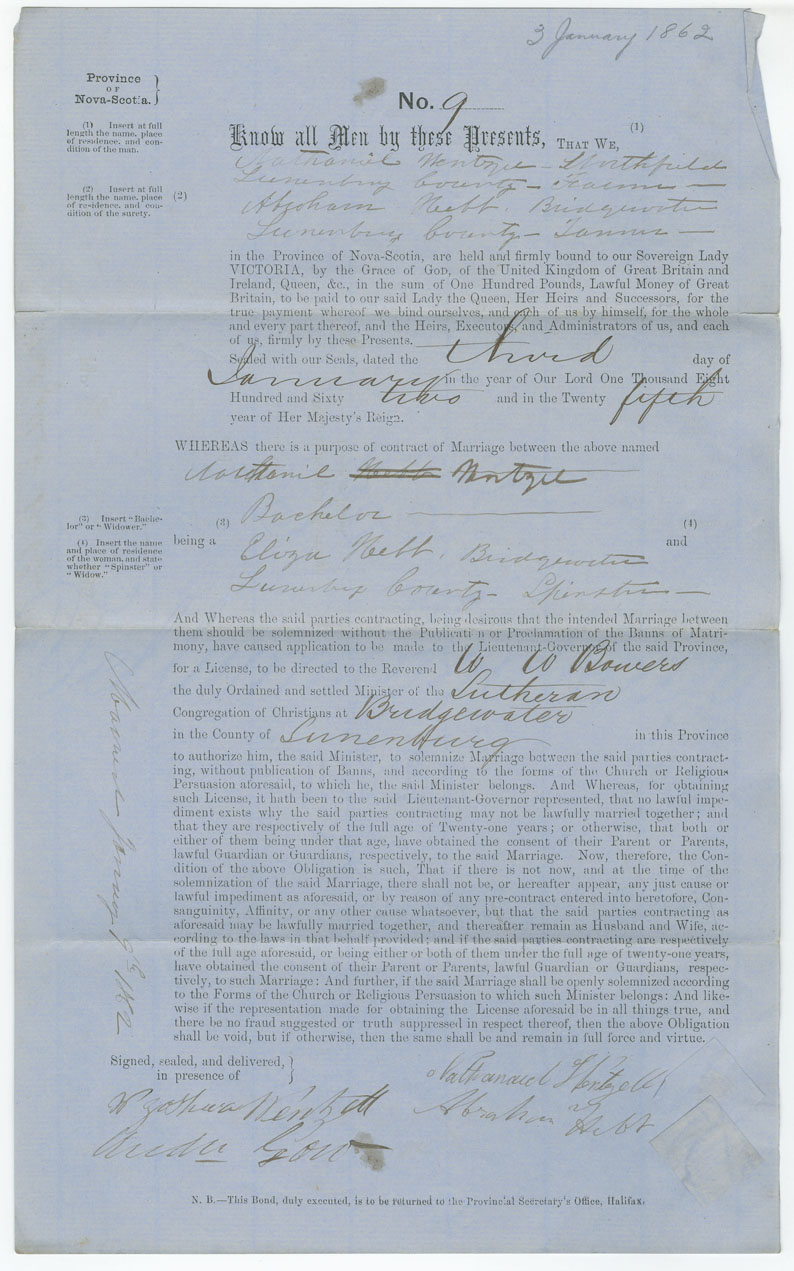 3 January 1862
Province
OF
Nova-Scotia.
No. 9
(1) Insert at full
length the name, place
of residence, and con-
dition of the man.
Know all Men by these Presents, THAT WE, (1)
Nathaniel Wentzel - Northfield
Lunenburg County - Farmer -
(2) Insert at full
length the name, place
of residence, and con-
dition of the surety.
(2)
Abraham Hebb Bridgewater
Lunenburg County - Tanner -
in the Province of Nova-Scotia, are held and firmly bound to our Sovereign Lady
VICTORIA, by the Grace of GOD, of the United Kingdom of Great Britain and
Ireland, Queen, &c., in the sum of One Hundred Pounds, Lawful Money of Great
Britain, to be paid to our said Lady the Queen, Her Heirs and Successors, for the
true payment whereof we bind ourselves, and each of us by himself, for the whole
and every part thereof, and the Heirs, Executors, and Administrators of us, and each
of us, firmly by these Presents.
Sealed with our Seals, dated the third day of
January in the year of Our Lord One Thousand Eight
Hundred and Sixty two and in the Twenty fifth
year of Her Majesty's Reign.
WHEREAS there is a purpose of contract of Marriage between the above named
Nathaniel Hebb Wentzel
(3) Insert "Bache-
lor" or "Widower."
being a (3) Bachelor (4) and
(4) Insert the name
and place of residence
of the woman, and state
whether "Spinster" or
"Widow."
Eliza Hebb, Bridgewater
Lunenburg County - Spinster -
And Whereas the said parties contracting, being desirous that the intended Marriage between
them should be solemnized without the Publicati n or Proclamation of the Banns of Matri-
mony, have caused application to be made to the Lieutenant-Governor of the said Province,
for a License, to be directed to the Reverend W W Bowers
the duly Ordained and settled Minister of the Lutheran
Congregation of Christians at Bridgewater
in the County of Lunenburg in this Province
to authorize him, the said Minister, to solemnize Marriage between the said parties contract-
ing, without publication of Banns, and according to the forms of the Church or Religious
Persuasion aforesaid, to which he, the said Minister belongs. And Whereas, for obtaining
such License, it hath been to the said Lieutenant-Governor represented, that no lawful impe-
diment exists why the said parties contracting may not be lawfully married together; and
that they are respectively of the full age of Twenty-one years; or otherwise, that both or
either of them being under that age, have obtained the consent of their Parent or Parents,
lawful Guardian or Guardians, respectively, to the said Marriage. Now, therefore, the Con-
dition of the above Obligation is such, That if there is not now, and at the time of the
solemnization of the said Marriage, there shall not be, or hereafter appear, any just cause or
lawful impediment as aforesaid, or by reason of any pre-contract entered into heretofore, Con-
sanguinity, Affinity, or any other cause whatsoever, but that the said parties contracting as
aforesaid may be lawfully married together, and thereafter remain as Husband and Wife, ac-
cording to the laws in that behalf provided; and if the said parties contracting are respectively
of the full age aforesaid, or being either or both of them under the full age of twenty-one years,
have obtained the consent of their Parent or Parents, lawful Guardian or Guardians, respec-
tively, to such Marriage: And further, if the said Marriage shall be openly solemnized according
to the Forms of the Church or Religious Persuasion to which such Minister belongs: And like-
wise if the representation made for obtaining the License aforesaid be in all things true, and
there be no fraud suggested or truth suppressed in respect thereof, then the above Obligation
shall be void, but if otherwise, then the same shall be and remain in full force and virtue.
Married January 1862
Signed, sealed, and delivered,
in presence of
Abraham Hebb
N. B.—This Bond, duly executed, is to be returned to the Provincial Secretary's Office, Halifax.